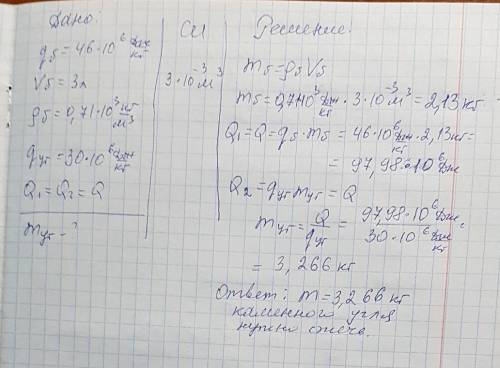 Дано:
q_б = 46·10⁶ Дж/кг
V_б = 3л
ρ_б = 0,71·10³ кг/м³
q_уг = 30·10⁶ Дж/кг
Q₁ = Q₂ = Q
m_уг - ?
СИ
3·10⁻³ м³
Решение:
m_б = ρ_б V_б
m_б = 0,71·10³ Дж/кг · 3·10⁻³ м³ = 2,13 кг
Q₁ = Q = q_б · m_б = 46·10⁶ Дж/кг · 2,13 кг =
= 97,98·10⁶ Дж
Q₂ = q_уг m_уг = Q
m_уг = Q/q_уг = 97,98·10⁶ Дж / 30·10⁶ Дж/кг =
= 3,266 кг
Ответ: m = 3,266 кг
каменного угля
нужно сжечь.